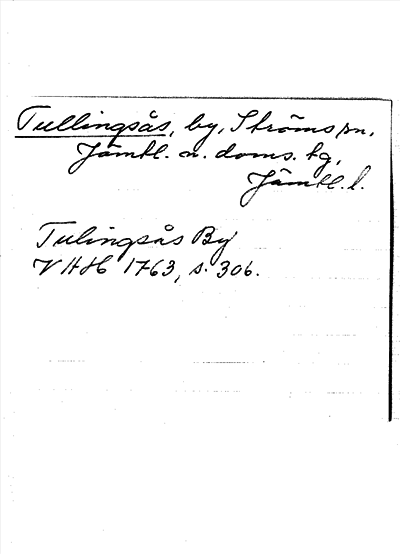 Tullingsås, by, Ströms sn,
Jämtl. n. doms. tg,
Jämtl. l.
Tulingsås By
VHAH 1763, s. 306.